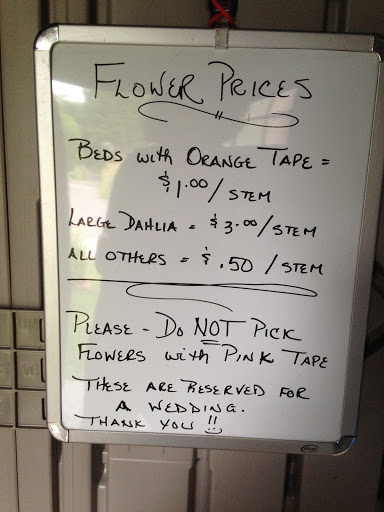 FLOWER PRICES
BEDS WITH ORANGE TAPE =
$1.00/STEM
LARGE DAHLIA = $3.00/STEM
ALL OTHERS = $.50/STEM
PLEASE - DO NOT PICK
FLOWERS WITH PINK TAPE
THESE ARE RESERVED FOR
A WEDDING.
THANK YOU !!